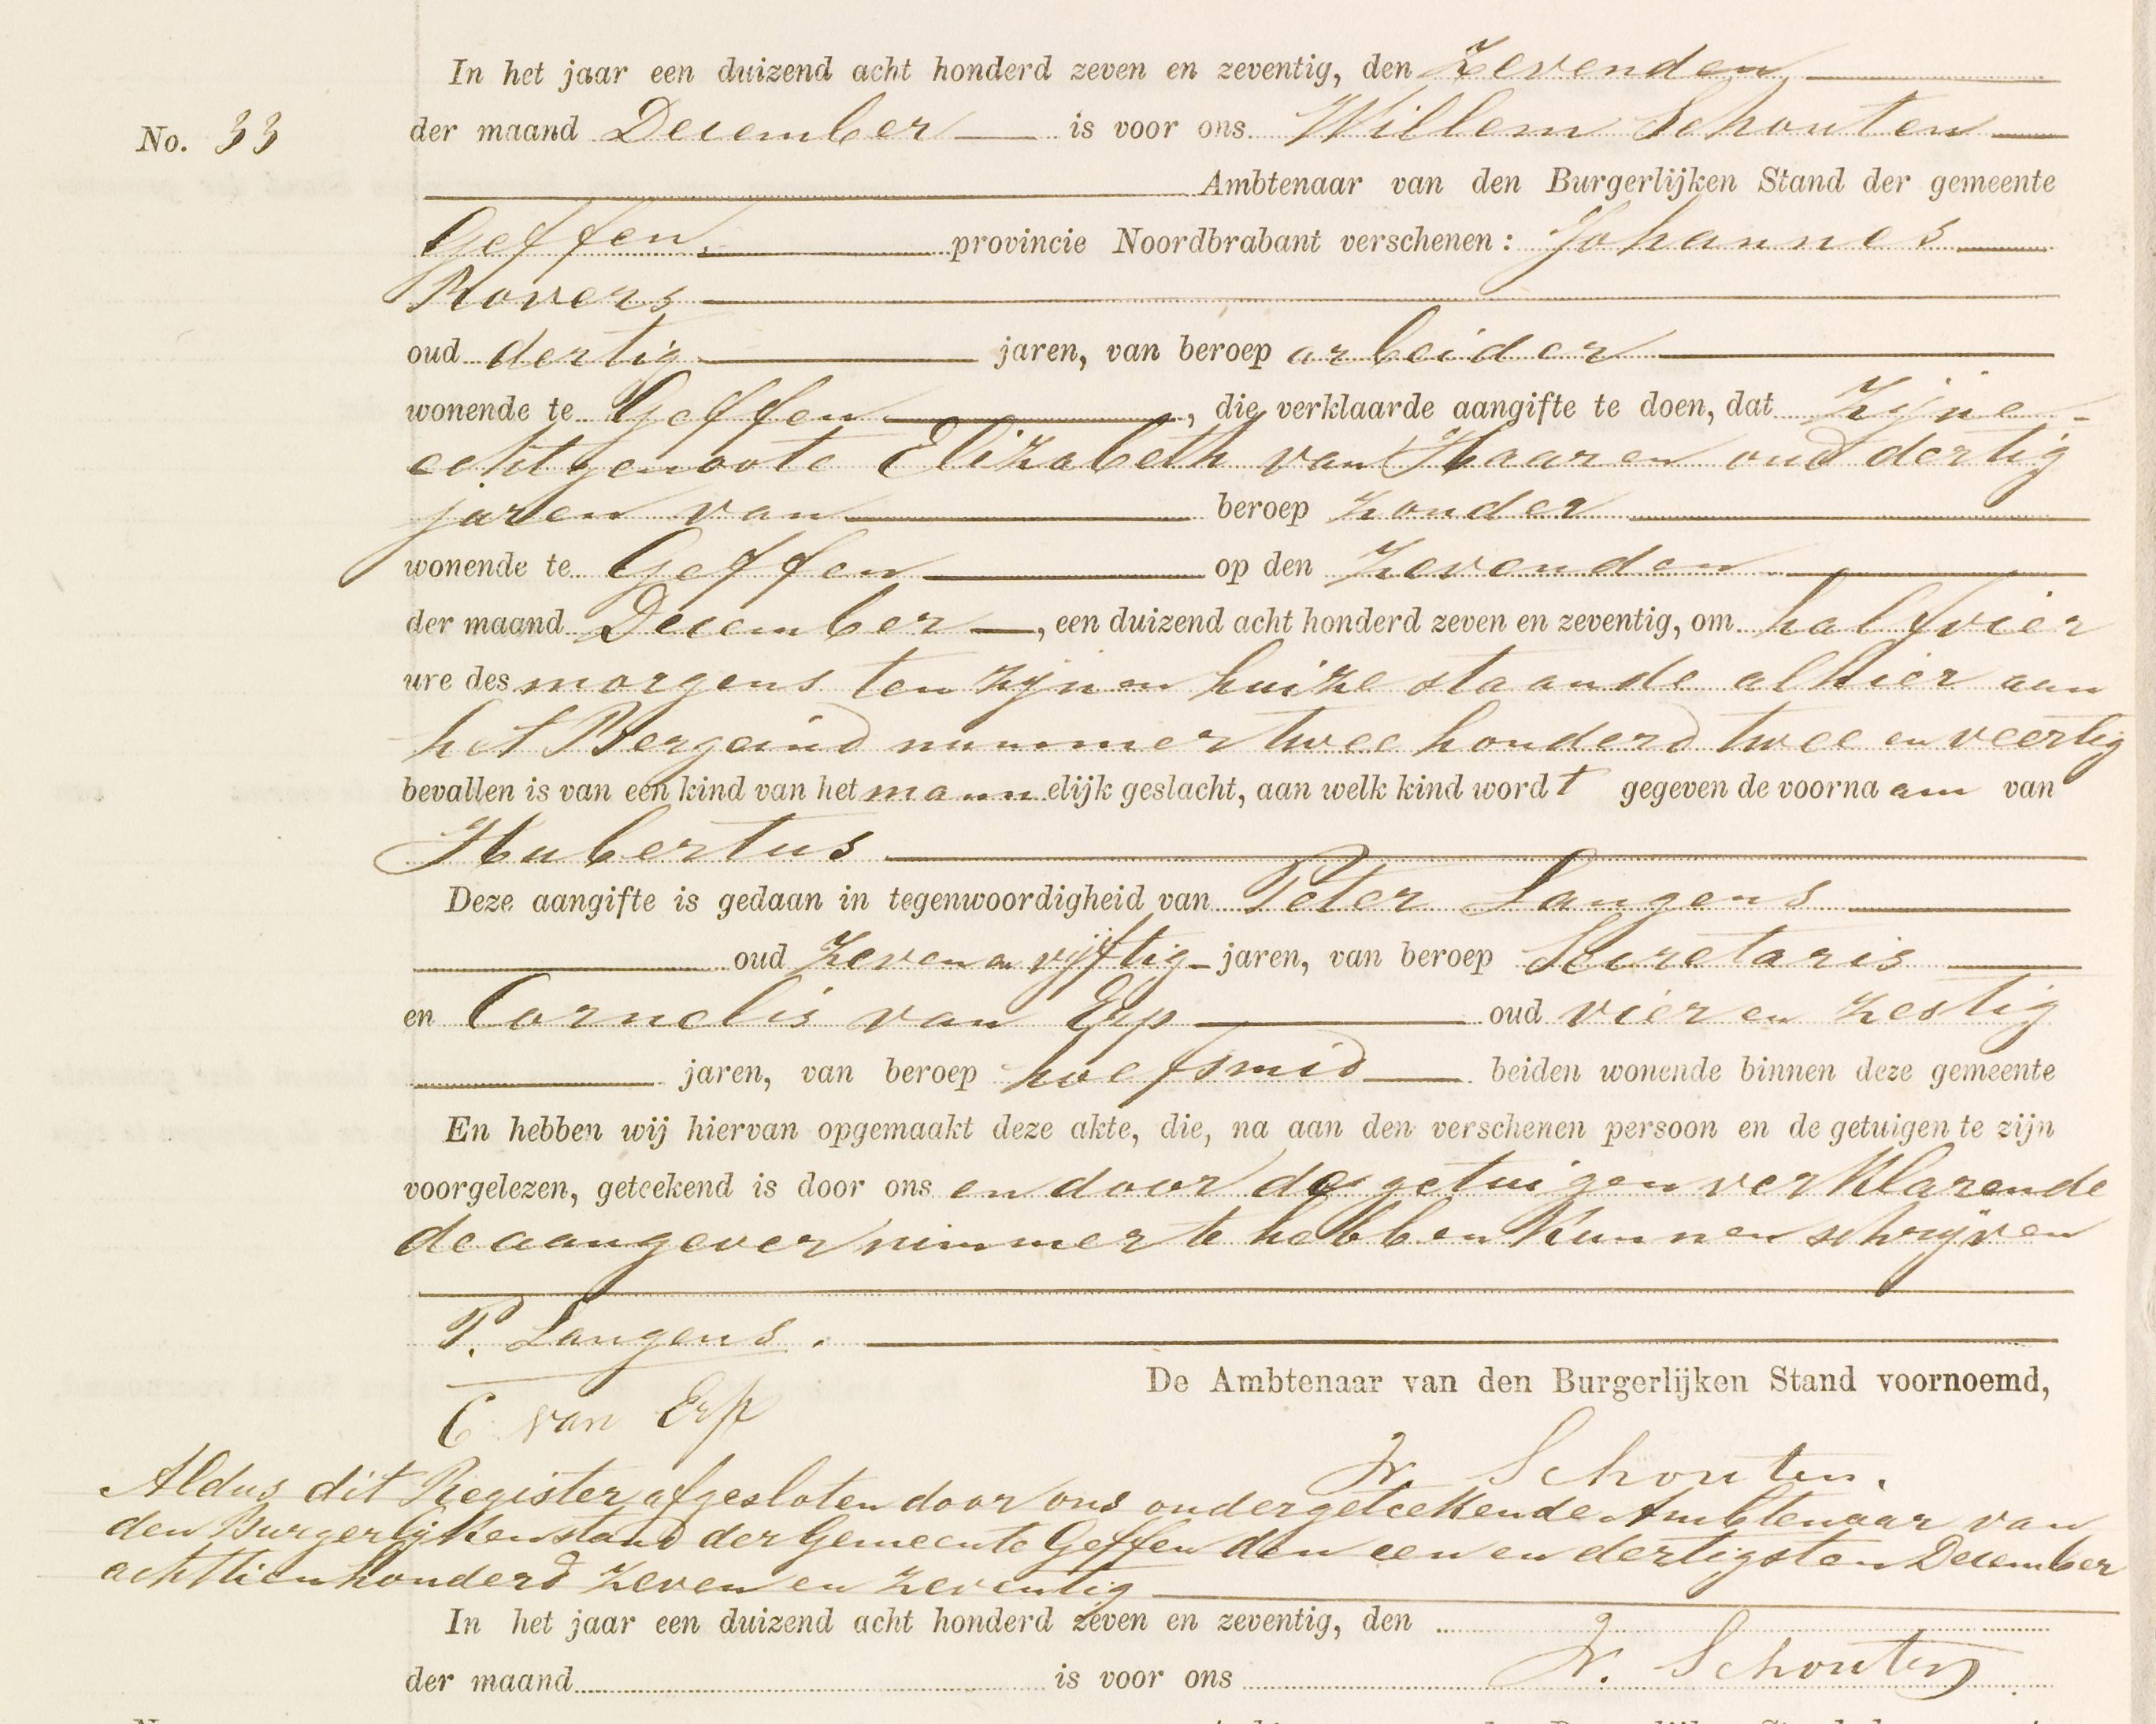 In het jaar een duizend acht honderd zeven en zeventig, den Zevenden
No. 33 der maand December is voor ons Willem Schouten
Ambtenaar van den Burgerlijken Stand der gemeente
Geffen, provincie Noordbrabant verschenen: Johannes
Rovers
oud dertig jaren, van beroep arbeider
wonende te Geffen, die verklaarde aangifte te doen, dat Zijne
echtgenoote Elizabeth van Haaren oud dertig
jaren van beroep zonder
wonende te Geffen op den Zevenden
der maand December, een duizend acht honderd zeven en zeventig, om half vier
ure des morgens ten zijnen huize staande alhier aan
het Bergeind nummer twee honderd twee en veertig
bevallen is van een kind van het mannelijk geslacht, aan welk kind wordt gegeven de voornaam van
Hubertus
Deze aangifte is gedaan in tegenwoordigheid van Peter Langens
oud Zeven en vijftig jaren, van beroep Secretaris
en Cornelis van Erp oud vier en zestig
jaren, van beroep hoefsmid beiden wonende binnen deze gemeente
En hebben wij hiervan opgemaakt deze akte, die, na aan den verschenen persoon en de getuigen te zijn
voorgelezen, geteekend is door ons en door de getuigen verklarende
de aangever nimmer te hebben kunnen schrijven
P. Langens.
De Ambtenaar van den Burgerlijken Stand voornoemd,
C van Erp
W. Schouten.
Aldus dit Register afgesloten door ons ondergeteekende Ambtenaar van
den Burgerlijken stand der Gemeente Geffen den een en dertigsten December
achttienhonderd zeven en zeventig
In het jaar een duizend acht honderd zeven en zeventig, den
der maand is voor ons W. Schouten